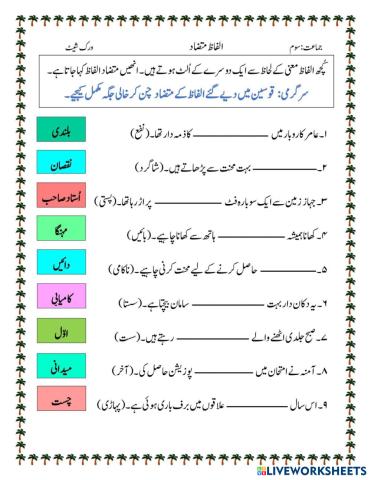 جماعت: سوم الفاظ متضاد ورک شیٹ
کچھ الفاظ معنی کے لحاظ سے ایک دوسرے کے اُلٹ ہوتے ہیں۔ انھیں متضاد الفاظ کہا جاتا ہے۔
سرگرمی: قوسین میں دیے گئے الفاظ کے متضاد چن کر خالی جگہ مکمل کیجیے۔
۱۔ عامر کاروبار میں ــــــــــــ کا ذمہ دار تھا۔ (نفع) بلندی
۲۔ ــــــــــــ بہت محنت سے پڑھاتے ہیں۔ (شاگرد) نقصان
۳۔ جہاز زمین سے ایک سو بارہ فٹ ــــــــــــ پر اڑ رہا تھا۔ (پستی) اُستاد صاحب
۴۔ کھانا ہمیشہ ــــــــــــ ہاتھ سے کھانا چاہیے۔ (بائیں) مہنگا
۵۔ ــــــــــــ حاصل کرنے کے لیے محنت کرنی چاہیے۔ (ناکامی) دائیں
۶۔ یہ دکان دار بہت ــــــــــــ سامان بیچتا ہے۔ (سستا) کامیابی
۷۔ صبح جلدی اٹھنے والے ــــــــــــ رہتے ہیں۔ (سست) اوّل
۸۔ آمنہ نے امتحان میں ــــــــــــ پوزیشن حاصل کی۔ (آخر) میدانی
۹۔ اس سال ــــــــــــ علاقوں میں برف باری ہوئی ہے۔ (پہاڑی) چست
LIVEWORKSHEETS